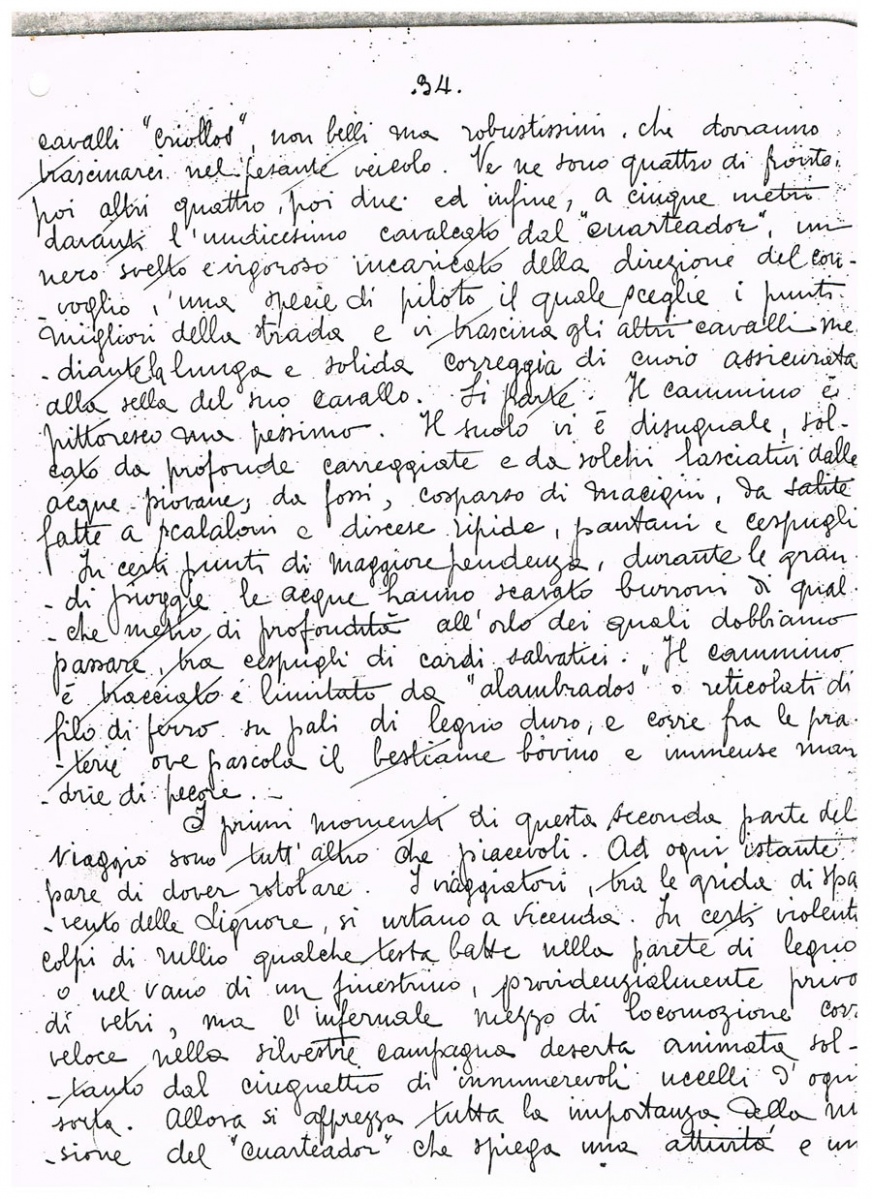 .34.
cavalli "criollos", non belli ma robustissimi, che dovranno
trascinarci nel pesante veicolo. Ve ne sono quattro di fronte,
poi altri quattro, poi due ed infine, a cinque metri
davanti l'undicesimo cavalcato dal "cuarteador", un
nero svelto e vigoroso incaricato della direzione del con-
-voglio, una specie di piloto il quale sceglie i punti
migliori della strada e vi trascina gli altri cavalli me
-diante la lunga e solida correggia di cuoio assicurata
alla sella del suo cavallo. Si parte. Il cammino è
pittoresco ma pessimo. Il suolo vi è disuguale, sol-
cato da profonde carreggiate e da solchi lasciativi dalle
acque piovane, da fossi, cosparso di macigni, da salite
fatte a scalaloni e discese ripide, pantani e cespugli
In certi punti di maggiore pendenza, durante le gran-
-di pioggie le acque hanno scavato burroni di qual-
-che metro di profondità all'orlo dei quali dobbiamo
passare, tra cespugli di cardi salvatici. Il cammino
è tracciato e limitato da "alambrados" o reticolati di
filo di ferro su pali di legno duro, e corre fra le pra-
-terie ove pascola il bestiame bovino e immense man
-drie di pecore. -
I primi momenti di questa seconda parte del
viaggio sono tutt'altro che piacevoli. Ad ogni istante
pare di dover rotolare. I viaggiatori, tra le grida di spa
-vento delle Signore, si urtano a vicenda. In certi violenti
colpi di rullio qualche testa batte nella parete di legno
o nel vano di un finestrino, provvidenzialmente privo
di vetri, ma l'infernale mezzo di locomozione corre
veloce nella silvestre campagna deserta animata sol-
-tanto dal cinguettio di innumerevoli uccelli d'ogni
sorta. Allora si apprezza tutta la importanza della mi
-sione del "cuarteador" che spiega una attività e un